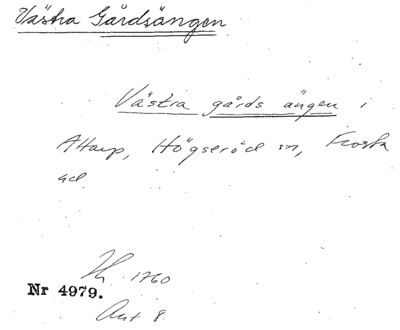 Västra Gårdsängen
Västra gårds ängen i
Altarp, Högseröd sn, Frosta
hd
Hy 1760
Nr 4979.
Akt 8.